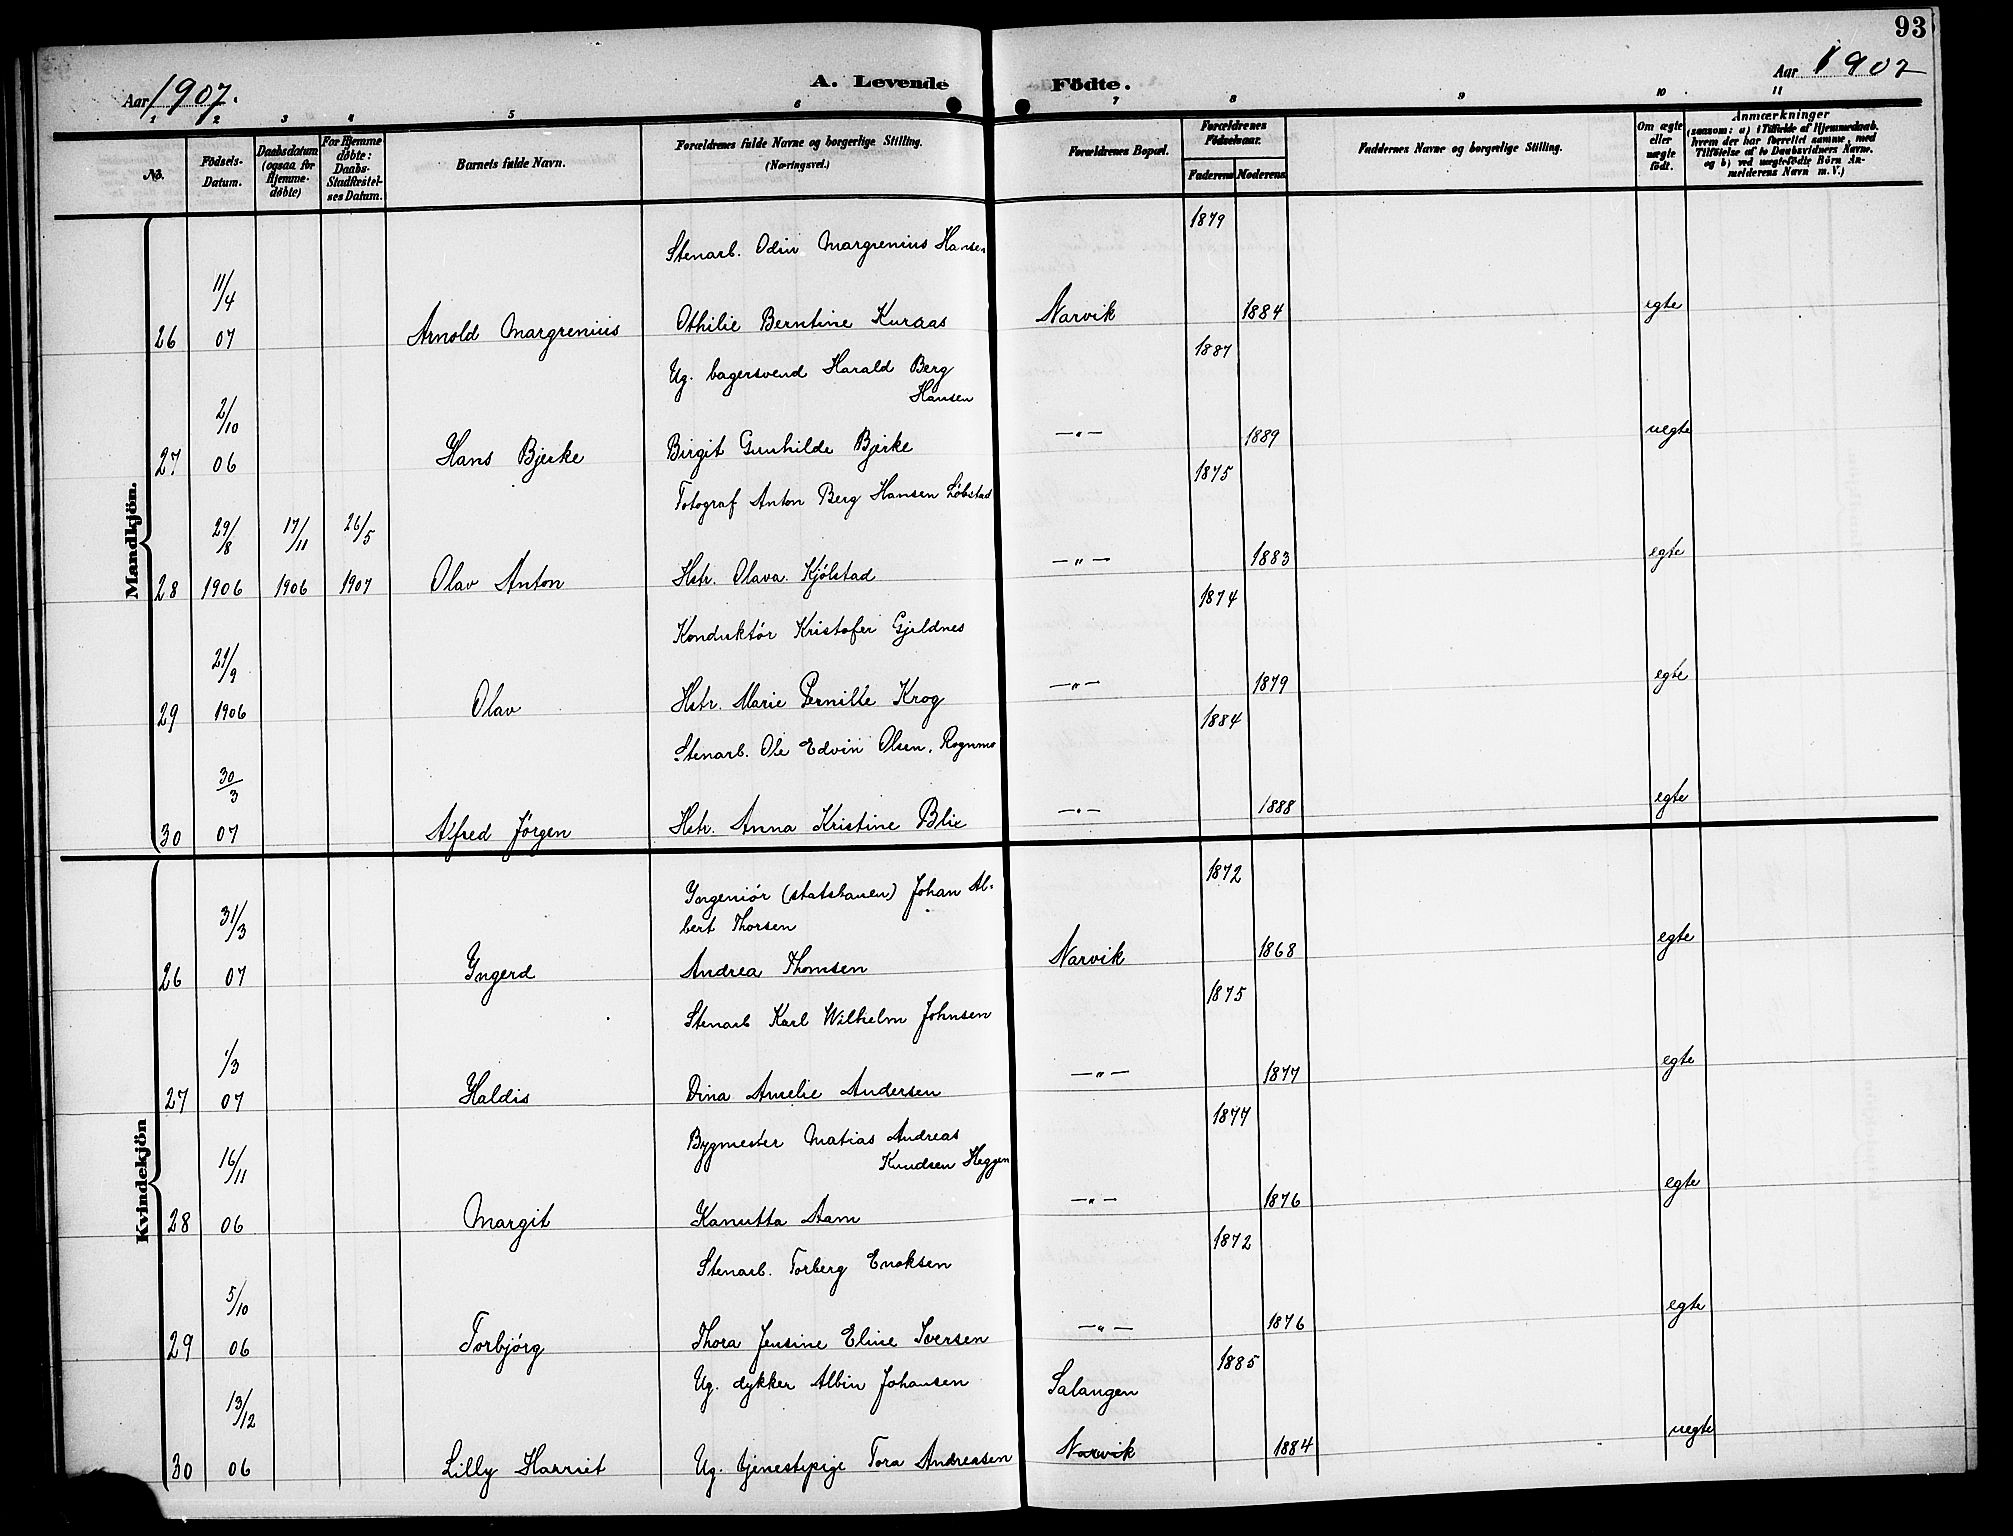 93
Aar 1907.
A. Levende Födte.
Aar 1907
1 2 3 4 5 6 7 8 9 10 11
No.
Födsels-Datum.
Daabsdatum (ogsaa for Hjemme-døbte)
For Hjemme døbte: Daabs-Stadfæstelses Datum.
Barnets fulde Navn.
Forældrenes fulde Navne og borgerlige Stilling.
(Næringsvei.)
Forældrenes Bopæl.
Forældrenes Födselsaar.
Faderens Moderens
Faddernes Navne og borgerlige Stilling.
Om ægte eller uægte födt.
Anmærkninger
(saasom: a) i Tilfælde af Hjemmedaab,
hvem der har forrettet samme, med
Tilföielse af to Daabsvidners Navne.
og b) ved uægtefödte Börn An-
melderens Navn m. V.)
Mandkjön.
Stenarb. Odin Margrenius Hansen 1879
26 11/4 07 Arnold Margrenius Othilie Berntine Kuraas Narvik 1884 egte
Ug. bagersvend Harald Berg 1887
Hansen
27 2/10 06 Hans Bjerke Birgit Gunhilde Bjerke —"— 1889 uegte
Fotograf Anton Berg Hansen Løbstad 1875
28 29/8 1906 17/11 1906 26/5 1907 Olav Anton Hstr. Olava Kjölstad —"— 1883 egte
Konduktör Kristofer Gjeldnes 1874
29 21/9 1906 Olav Hstr. Marie Pernille Krog —"— 1879 egte
Stenarb. Ole Edvin Olsen, Rognmo 1884
30 30/3 07 Alfred Jörgen Hstr. Anna Kristine Blix —"— 1888 egte
Kvindekjön
Yngeniör (statsbanen) Johan Al- 1872
bert Thorsen
26 31/3 07 Yngerd Andrea Thomsen Narvik 1868 egte
Stenarb Karl Wilhelm Johnsen 1875
27 1/3 07 Haldis Dina Amelie Andersen —"— 1877 egte
Bygmester Matias Andreas 1877
Knudsen Heggen
28 16/11 06 Margit Kanutta Aam —"— 1876 egte
Stenarb. Torberg Enoksen 1872
29 5/10 06 Torbjörg Thora Jensine Eline Iversen —"— 1876 egte
Ug. dykker Albin Johansen Salangen 1885
30 13/12 06 Lilly Harriet Ug. tjenestepige Tora Andreasen Narvik 1884 uegte